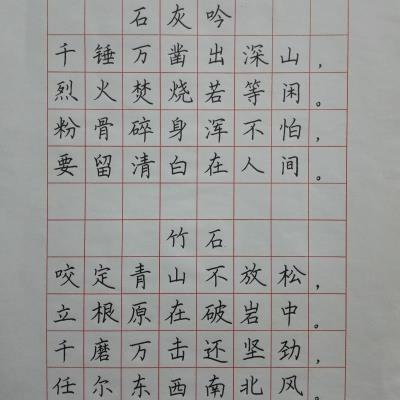 石灰吟
千锤万凿出深山，
烈火焚烧若等闲。
粉骨碎身浑不怕，
要留清白在人间。
竹石
咬定青山不放松，
立根原在破岩中。
千磨万击还坚劲，
任尔东西南北风。